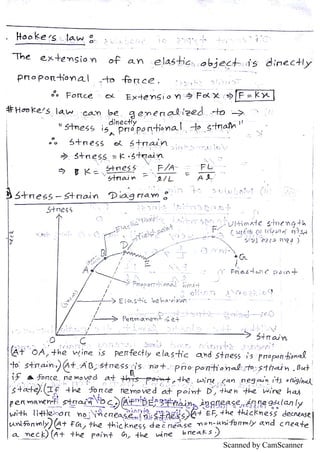 . Hooke's law :
The extension of an elastic object is directly
proportional to force.
∴ Force ∝ Extension ⇒ F∝x ⇒ F = Kx
# Hooke's law can be generalized to →
"stress is directly proportional to strain"
∴ stress ∝ strain
⇒ stress = K·strain
⇒ K = stress/strain = F/A / l/L = FL / Al
Stress-strain Diagram :
Stress
Ultimate strength
F
Elastic limit
Yield point
B
D
E
A
G
Fracture point
Proportional limit
Elastic behaviour
Permanent set
O
C
Strain
(At OA, the wire is perfectly elastic and stress is proportional
to strain.) (At AB, stress is not proportional to strain. But
if a force removed at this point B, the wire can regain its original
state) (If the force removed at point D, then the wire has
permanent strain OC.) (At DE, strain increase irregularly
with little or no increase in stress) (At EF, the thickness decrease
uniformly) (At FG, the thickness decrease non-uniformly and create
a neck) (At the point G, the wire breaks)
Scanned by CamScanner